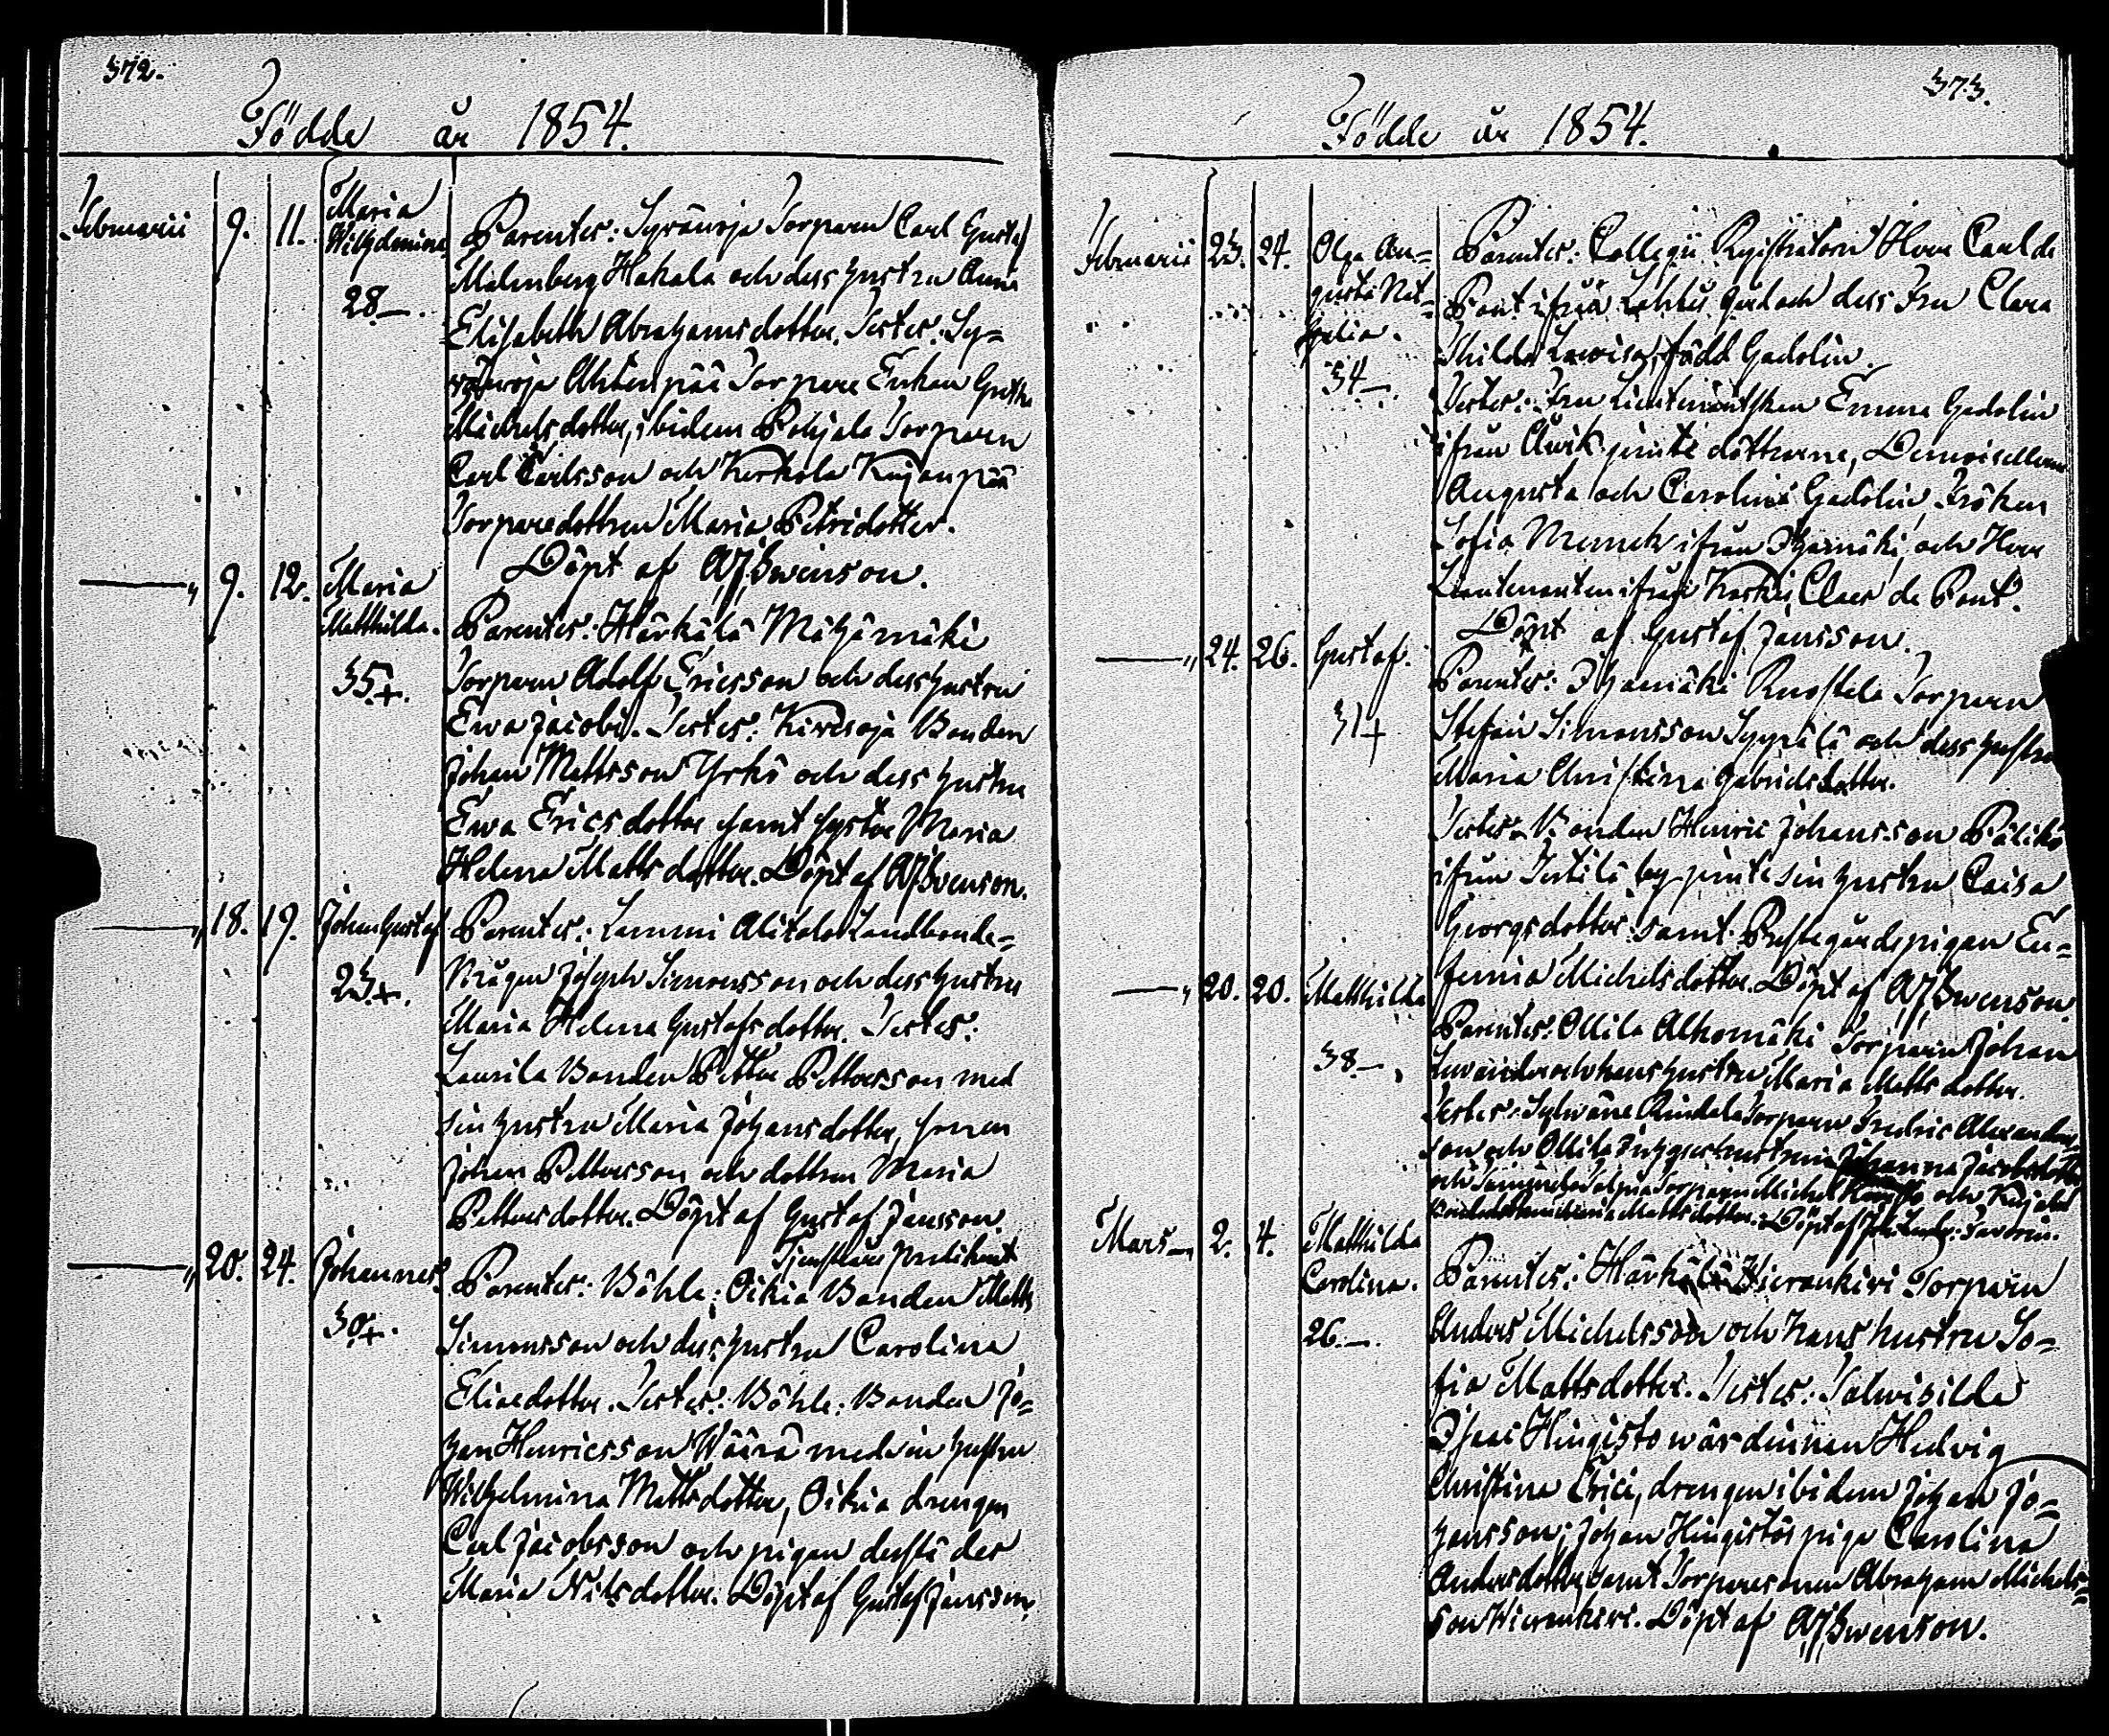 372.
Födde år 1854.
Februarii 9. 11. Maria Wilhelmina. 28.–
Parentes: Syvänoja Torparen Carl Gustaf
Malmberg Hakala och dess hustru Anna
Elisabeth Abrahamsdotter. Testes: Sy-
vänoja Torpare Enkan
Michelsdotter, ibidem Pohjala Torparen
Carl Carlsson och Kerkola Kujanpää
Torparedottren Maria Petridotter.
Döpt af AJSwenson.
—„ 9. 12. Maria Mathilda. 35.+.
Parentes: Härkälä Mähämäki
Torparen Adolf Ericsson och dess hustru
Ewa Jacobi. Testes: Kirvesoja Bonden
Johan Mattsson Yrkö och dess hustru
Ewa Ericsdotter samt syster Maria
Helena Mattsdotter. Döpt af AJSwenson.
—„ 18. 19. Johan Gustaf 23.+.
Parentes: Lammi Alitalo Landbonde-
Mågen Joseph Simonsson och dess hustru
Maria Helena Gustafsdotter. Testes:
Laurila Bonden Petter Pettersson med
sin hustru Maria Johansdotter, sonen
Johan Pettersson och dottren Maria
Pettersdotter. Döpt af Gustaf Jansson.
—„ 20. 24. Johannes. 30.+.
Parentes: Böhle: Oikia Bonden Matts
Simonsson och dess hustru Carolina
Eliaedotter. Testes: Böhle: Bonden Jo-
han Henricsson Wäärä med sin hustru
Wilhelmina Mattsdotter, Oikia drengen
Carl Jacobsson och pigan der
Maria Nilsdotter. Döpt af Gustaf Jansson.
373.
Födde år 1854.
Februarii 23. 24. Olga Au-
gusta Nat-
halia. 34.–
Parentes: Collegii Registratorn Herr Carl de
Pont ifrån gård och dess Fru Clara
Lovisa, född Gadolin.
Testes: Fru Lieutenantskan Emma Gadolin
ifrån jemte döttrarne, Demoisellerna
Augusta och Carolina Gadolin, Fröken
Sofia Munck ifrån Ihamäki och Herr
Lieutenanten ifrån Koski, Claes de Pont.
Döpt af Gustaf Jansson.
—„ 24. 26. Gustaf. 31+
Parentes: Ihamäki Ruostela Torparen
Stefan Simonsson Syypilä och dess hustru
Maria Christina Gabrielsdotter.
Testes: Bonden Henric Johansson Pälikö
ifrån by jemte sin hustru Caisa
Georgsdotter samt Prestegårdspigan Eu-
femia Michelsdotter. Döpt af AJSwenson.
—„ 20. 20. Mathilda 38.–
Parentes: Ollila Alhomäki Torparen Johan
och hans hustru Maria Mattsdotter.
Testes: Torparen Fredric Alexanders-
son och Ollila Johanna Jacobsdotter
och Torparen Michel och
Mattsdotter. Döpt af
Mars– 2. 4. Mathilda Carolina. 26.–
Parentes: Härkälä Hierankivi Torparen
Anders Michelsson och hans hustru So-
fia Mattsdotter. Testes: Talvisilda
Isaac Hingisto wärdinnan Hedvig
Christina Erici, drengen ibidem Johan Jo-
hansson; Johan Hingistös piga Carolina
Andersdotter samt Torparesonen Abraham Michels-
son Hierankivi. Döpt af AJSwenson.